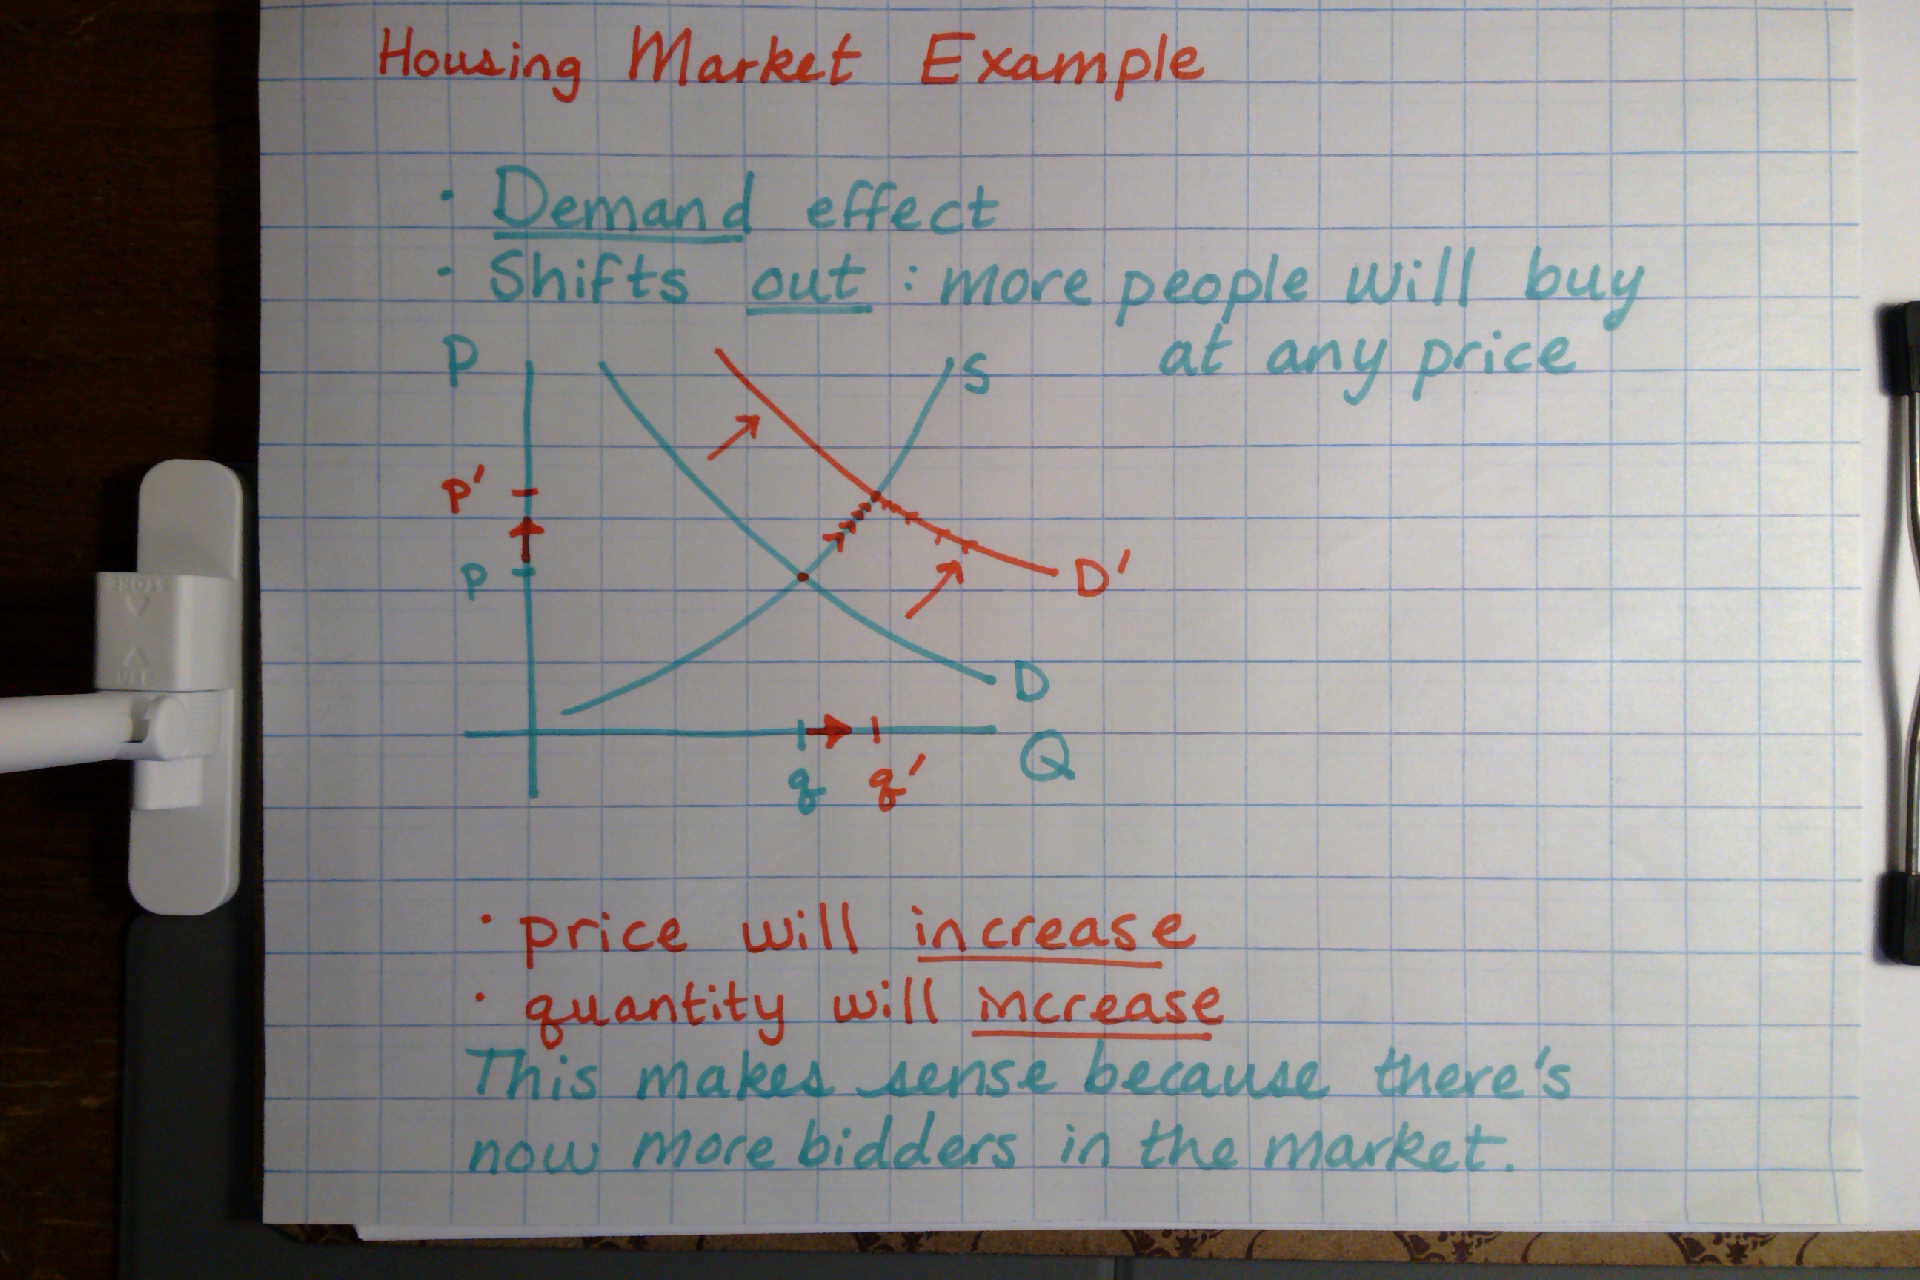 Housing Market Example
· Demand effect
· Shifts out : more people will buy
at any price
P
S
P'
P
D'
D
Q
q
q'
· price will increase
· quantity will increase
This makes sense because there's
now more bidders in the market.